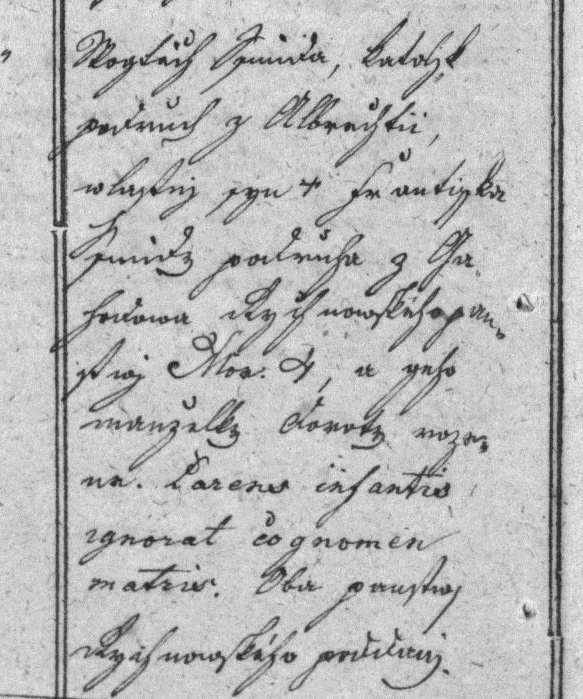 Wogtěch Šmida, katolýk
podruh z Albrechtic,
wlastnj syn + Frantisska
Šmidy podruha z Ga
hodowa Rychnowského pan„
stwj Nro. 4, a geho
manželky Doroty roze„
né. Parens infantis
ignorat cognomen
matris. Oba panstwj
Rychnowského poddanj.